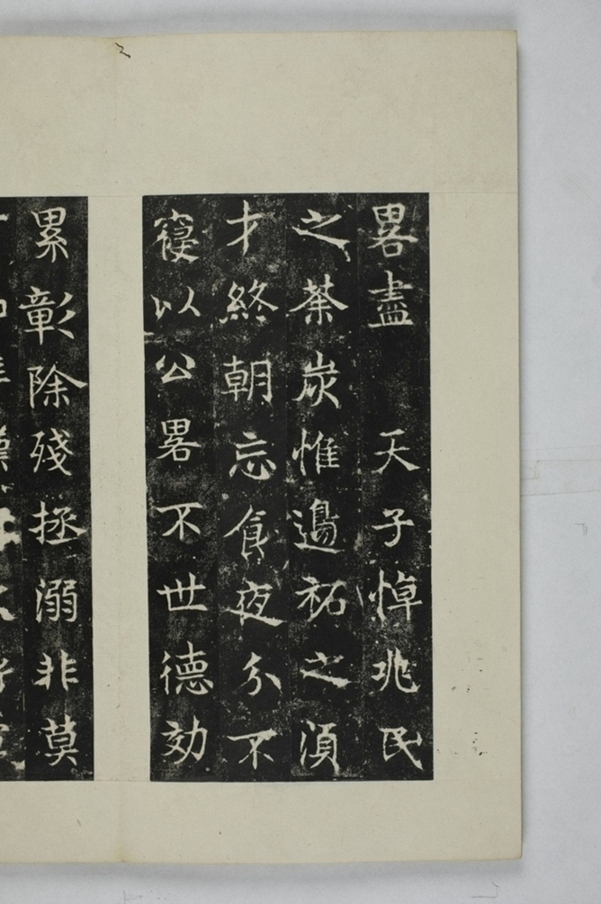 畧盡　天子悼兆民
之荼炭惟邊祏之湏
才終朝忘食夜分不
寑以公畧不世德効
累彰除殘拯溺非莫